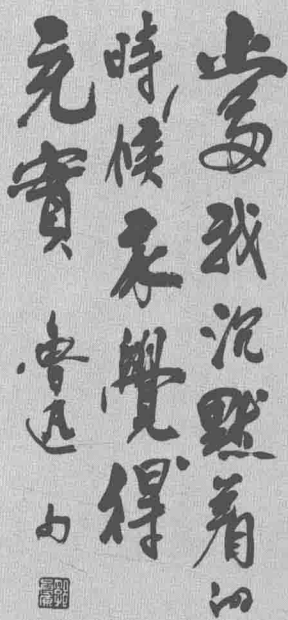 當我沉默着的
時候我覺得
充實 魯迅句